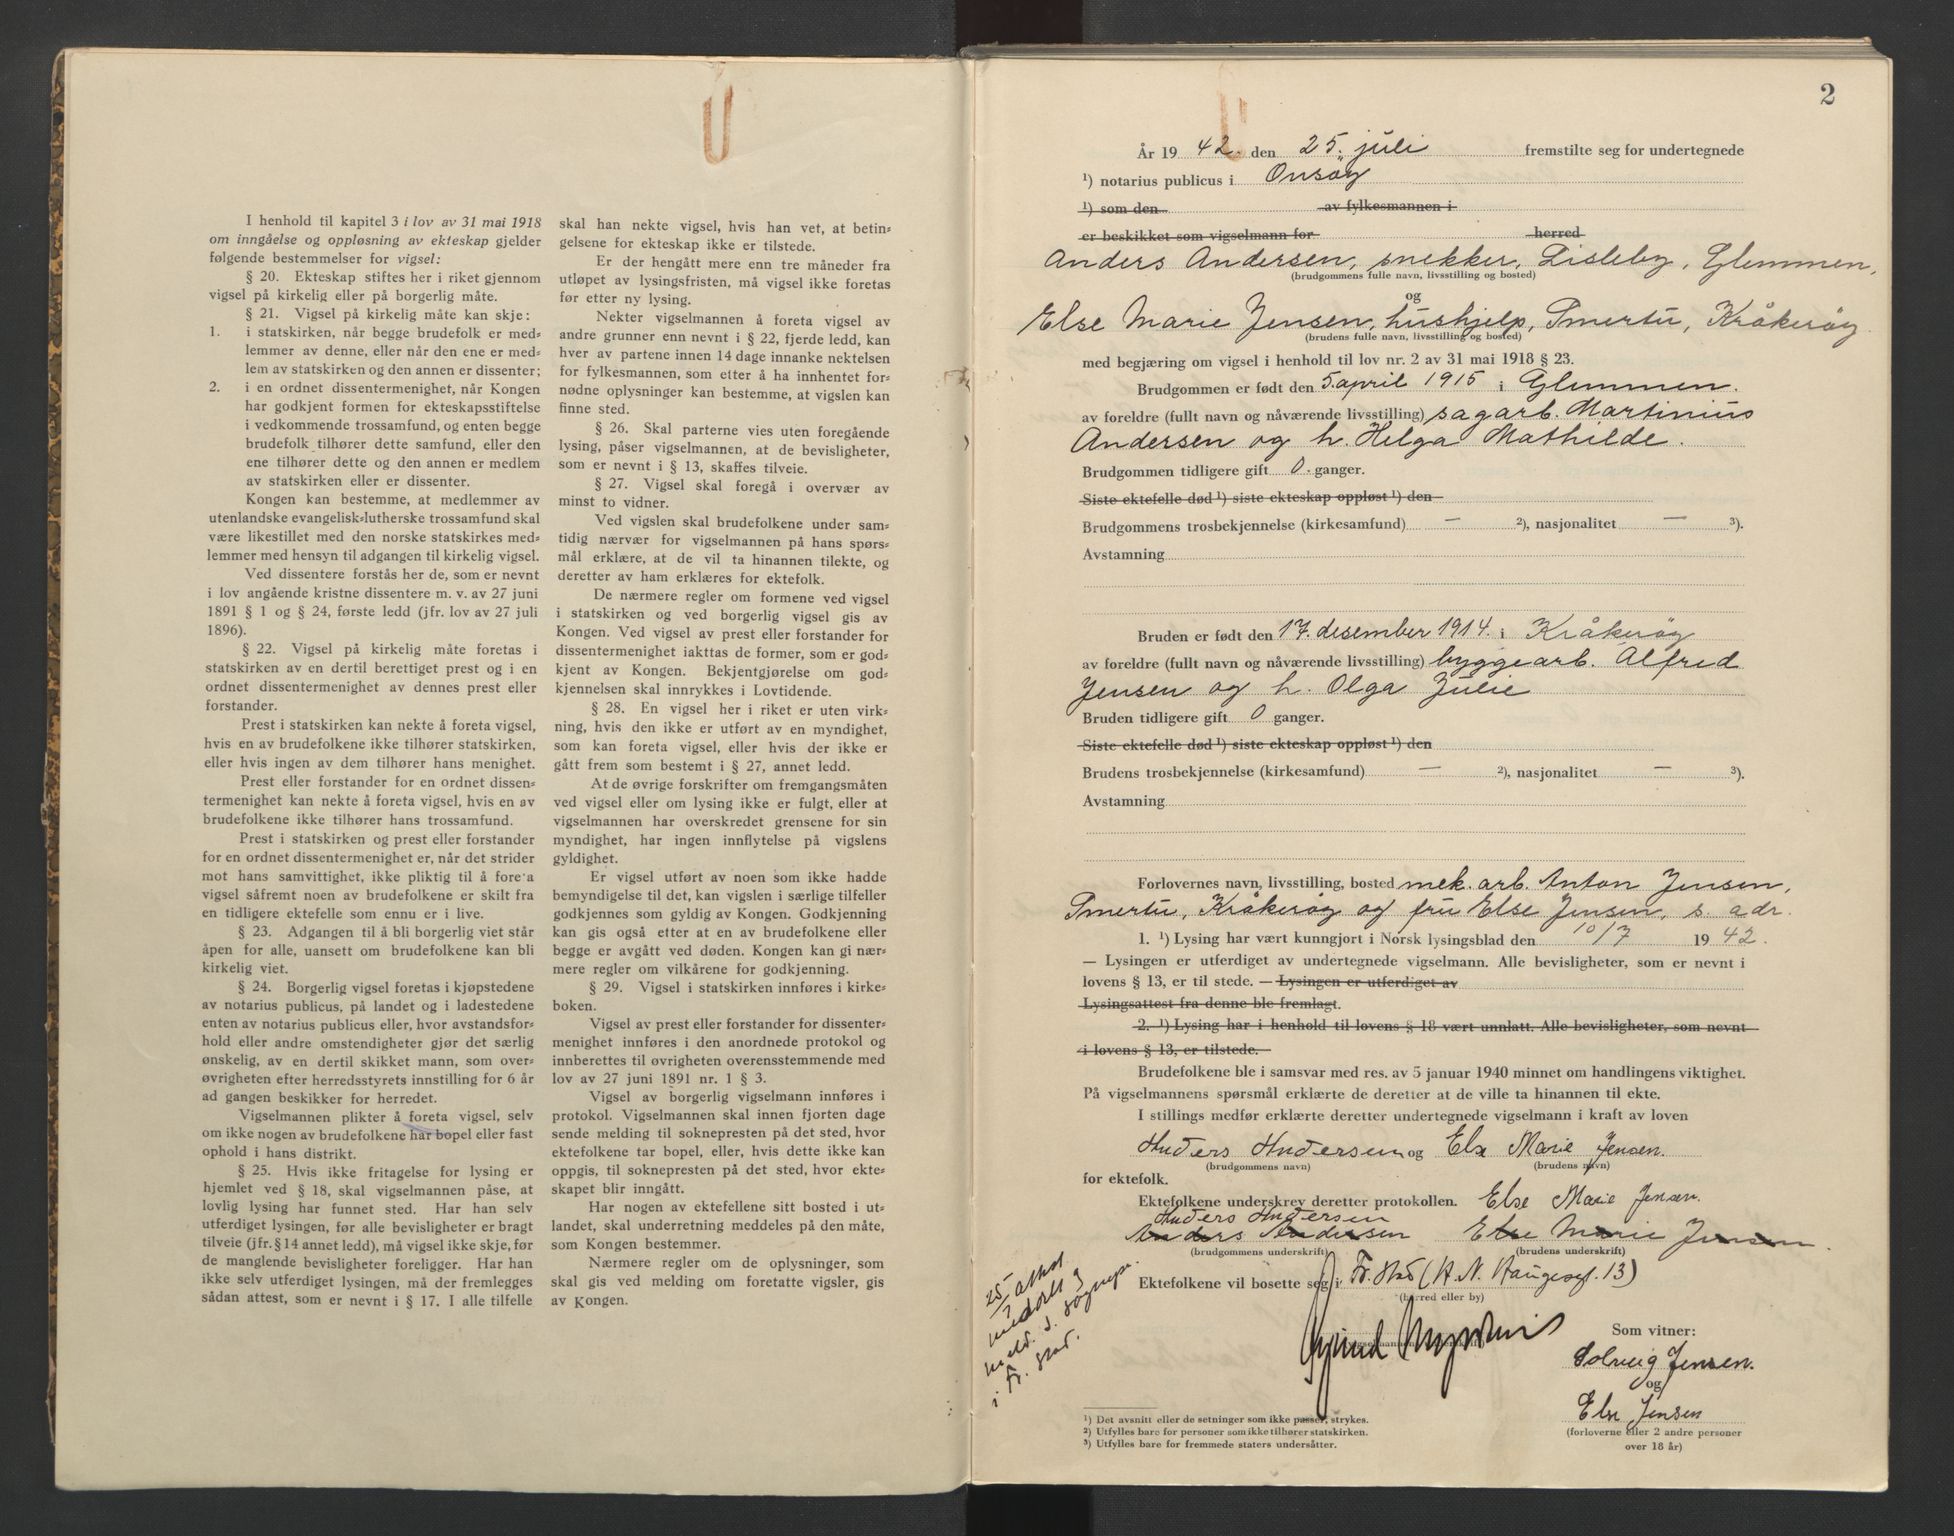 I henhold til kapitel 3 i lov av 31 mai 1918
om inngåelse og oppløsning av ekteskap gjelder
følgende bestemmelser for vigsel:
§ 20. Ekteskap stiftes her i riket gjennom
vigsel på kirkelig eller på borgerlig måte.
§ 21. Vigsel på kirkelig måte kan skje:
1. i statskirken, når begge brudefolk er med-
lemmer av denne, eller når den ene er med-
lem av statskirken og den annen er dissenter;
2. i en ordnet dissentermenighet, når Kongen
har godkjent formen for ekteskapsstiftelse
i vedkommende trossamfund, og enten begge
brudefolk tilhører dette samfund, eller den
ene tilhører dette og den annen er medlem
av statskirken eller er dissenter.
Kongen kan bestemme, at medlemmer av
utenlandske evangelisk-lutherske trossamfund skal
være likestillet med den norske statskirkes med-
lemmer med hensyn til adgangen til kirkelig vigsel.
Ved dissentere forstås her de, som er nevnt
i lov angående kristne dissentere m. v. av 27 juni
1891 § 1 og § 24, første ledd (jfr. lov av 27 juli
1896).
§ 22. Vigsel på kirkelig måte foretas i
statskirken av en dertil berettiget prest og i en
ordnet dissentermenighet av dennes prest eller
forstander.
Prest i statskirken kan nekte å foreta vigsel,
hvis en av brudefolkene ikke tilhører statskirken,
eller hvis ingen av dem tilhører hans menighet.
Prest eller forstander for en ordnet dissen-
termenighet kan nekte å foreta vigsel, hvis en av
brudefolkene ikke tilhører hans trossamfund.
Prest i statskirken og prest eller forstander
for en ordnet dissentermenighet er, når det strider
mot hans samvittighet, ikke pliktig til å foreta
vigsel såfremt noen av brudefolkene er skilt fra
en tidligere ektefelle som ennu er i live.
§ 23. Adgangen til å bli borgerlig viet står
åpen for alle, uansett om brudefolkene kan bli
kirkelig viet.
§ 24. Borgerlig vigsel foretas i kjøpstedene
av notarius publicus, på landet og i ladestedene
enten av notarius publicus eller, hvor avstandsfor-
hold eller andre omstendigheter gjør det særlig
ønskelig, av en dertil skikket mann, som over-
øvrigheten efter herredsstyrets innstilling for 6 år
ad gangen beskikker for herredet.
Vigselmannen plikter å foreta vigsel, selv
om ikke nogen av brudefolkene har bopel eller fast
ophold i hans distrikt.
§ 25. Hvis ikke fritagelse for lysing er
hjemlet ved § 18, skal vigselmannen påse, at
lovlig lysing har funnet sted. Har han selv
utferdiget lysingen, før alle bevisligheter er bragt
tilveie (jfr. § 14 annet ledd), må vigsel ikke skje, før
de manglende bevisligheter foreligger. Har han
ikke selv utferdiget lysingen, må der fremlegges
sådan attest, som er nevnt i § 17. I alle tilfelle
skal han nekte vigsel, hvis han vet, at betin-
gelsene for ekteskap ikke er tilstede.
Er der hengått mere enn tre måneder fra
utløpet av lysingsfristen, må vigsel ikke foretas
før etter ny lysing.
Nekter vigselmannen å foreta vigsel av
andre grunner enn nevnt i § 22, fjerde ledd, kan
hver av partene innen 14 dage innanke nektelsen
for fylkesmannen, som etter å ha innhentet for-
nødne oplysninger kan bestemme, at vigslen kan
finne sted.
§ 26. Skal parterne vies uten foregående
lysing, påser vigselmannen, at de bevisligheter,
som er nevnt i § 13, skaffes tilveie.
§ 27. Vigsel skal foregå i overvær av
minst to vidner.
Ved vigslen skal brudefolkene under sam-
tidig nærvær for vigselmannen på hans spørs-
mål erklære, at de vil ta hinannen tilekte, og
deretter av ham erklæres for ektefolk.
De nærmere regler om formene ved vigsel
i statskirken og ved borgerlig vigsel gis av
Kongen. Ved vigsel av prest eller forstander for
dissentermenighet iakttas de former, som er god-
kjent av Kongen. Bekjentgjørelse om god-
kjennelsen skal innrykkes i Lovtidende.
§ 28. En vigsel her i riket er uten virk-
ning, hvis den ikke er utført av en myndighet,
som kan foreta vigsel, eller hvis der ikke er
gått frem som bestemt i § 27, annet ledd.
At de øvrige forskrifter om fremgangsmåten
ved vigsel eller om lysing ikke er fulgt, eller at
vigselmannen har overskredet grensene for sin
myndighet, har ingen innflytelse på vigslens
gyldighet.
Er vigsel utført av noen som ikke hadde
bemyndigelse til det, kan vigslen i særlige tilfeller
godkjennes som gyldig av Kongen. Godkjenning
kan gis også etter at en av brudefolkene eller
begge er avgått ved døden. Kongen kan gi nær-
mere regler om vilkårene for godkjenning.
§ 29. Vigsel i statskirken innføres i kirke-
boken.
Vigsel av prest eller forstander for dissenter-
menighet innføres i den anordnede protokol og
innberettes til øvrigheten overensstemmende med
lov av 27 juni 1891 nr. 1 § 3.
Vigsel av borgerlig vigselmann innføres i
protokol. Vigselmannen skal innen fjorten dage
sende melding til soknepresten på det sted, hvor
ektefolkene tar bopel, eller, hvis dette ikke kan
oppgis, til soknepresten på det sted, hvor ekte-
skapet blir inngått.
Har nogen av ektefellene sitt bosted i ut-
landet, skal underretning meddeles på den måte,
som Kongen bestemmer.
Nærmere regler om de oplysninger, som
skal gis ved melding om foretatte vigsler, gis
av Kongen.
2
År 19 42. den 25. juli fremstilte seg for undertegnede
¹) notarius publicus i Onsøy
¹) som den av fylkesmannen i
er beskikket som vigselmann for herred
Anders Andersen, snekker, Lisleby, Glemmen,
(brudgommens fulle navn, livsstilling og bosted)
og
Else Marie Jensen, hushjelp, Smertu, Kråkerøy
(brudens fulle navn, livsstilling og bosted)
med begjæring om vigsel i henhold til lov nr. 2 av 31 mai 1918 § 23.
Brudgommen er født den 5. april 1915 i Glemmen.
av foreldre (fullt navn og nåværende livsstilling) sagarb. Martinius
Andersen og h. Helga Mathilde.
Brudgommen tidligere gift 0. ganger.
Siste ektefelle død ¹) siste ekteskap oppløst ¹) den
Brudgommens trosbekjennelse (kirkesamfund) — ²), nasjonalitet — ³).
Avstamning
Bruden er født den 17. desember 1914. i Kråkerøy
av foreldre (fullt navn og nåværende livsstilling) byggearb. Alfred
Jensen og h. Olga Julie
Bruden tidligere gift 0 ganger.
Siste ektefelle død ¹) siste ekteskap oppløst ¹) den
Brudens trosbekjennelse (kirkesamfund) — ²), nasjonalitet — ³).
Avstamning
Forlovernes navn, livsstilling, bosted mek. arb. Anton Jensen,
Smertu, Kråkerøy og fru Else Jensen, s. adr.
1. ¹) Lysing har vært kunngjort i Norsk lysingsblad den 10/7 19 42.
— Lysingen er utferdiget av undertegnede vigselmann. Alle bevisligheter, som er nevnt i
lovens § 13, er til stede. — Lysingen er utferdiget av
Lysingsattest fra denne ble fremlagt.
2. ¹) Lysing har i henhold til lovens § 18 vært unnlatt. Alle bevisligheter, som nevnt
i lovens § 13, er tilstede.
Brudefolkene ble i samsvar med res. av 5 januar 1940 minnet om handlingens viktighet.
På vigselmannens spørsmål erklærte de deretter at de ville ta hinannen til ekte.
I stillings medfør erklærte deretter undertegnede vigselmann i kraft av loven
Anders Andersen og Else Marie Jensen.
(brudgommens navn) (brudens navn)
for ektefolk.
Ektefolkene underskrev deretter protokollen. Else Marie Jensen.
Anders Andersen
Anders Andersen Else Marie Jensen.
(brudgommens underskrift) (brudens underskrift)
Ektefolkene vil bosette seg i Fr.stad (H. N. Haugesgt. 13)
(herred eller by)
25/7 attest
meddelt og
meld. s. sognepr.
i Fr.stad.
Som vitner:
Solveig Jensen.
og
Else Jensen
(forloverne eller 2 andre personer
over 18 år)
¹) Det avsnitt eller de setninger som ikke passer, strykes.
²) Utfylles bare for personer som ikke tilhører statskirken.
³) Utfylles bare for fremmede staters undersåtter.